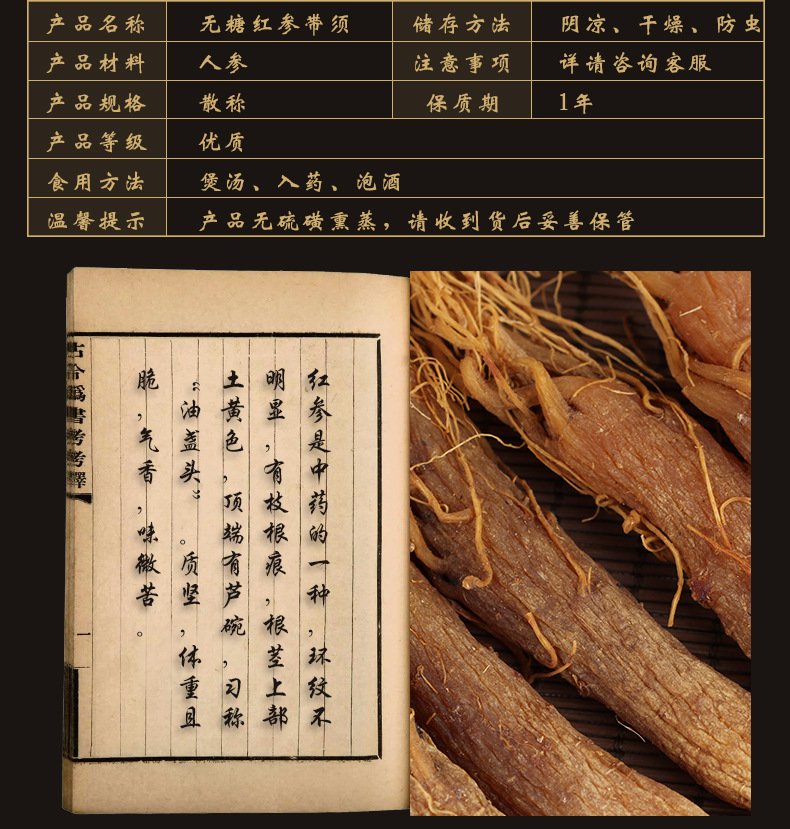 产品名称 无糖红参带须 储存方法 阴凉、干燥、防虫
产品材料 人参 注意事项 详请咨询客服
产品规格 散称 保质期 1年
产品等级 优质
食用方法 煲汤、入药、泡酒
温馨提示 产品无硫磺熏蒸，请收到货后妥善保管
红参是中药的一种，环纹不
明显，有枝根痕，根茎上部
土黄色，顶端有芦碗，习称
“油盏头”。质坚，体重且
脆，气香，味微苦。
古今僞書考考釋
一